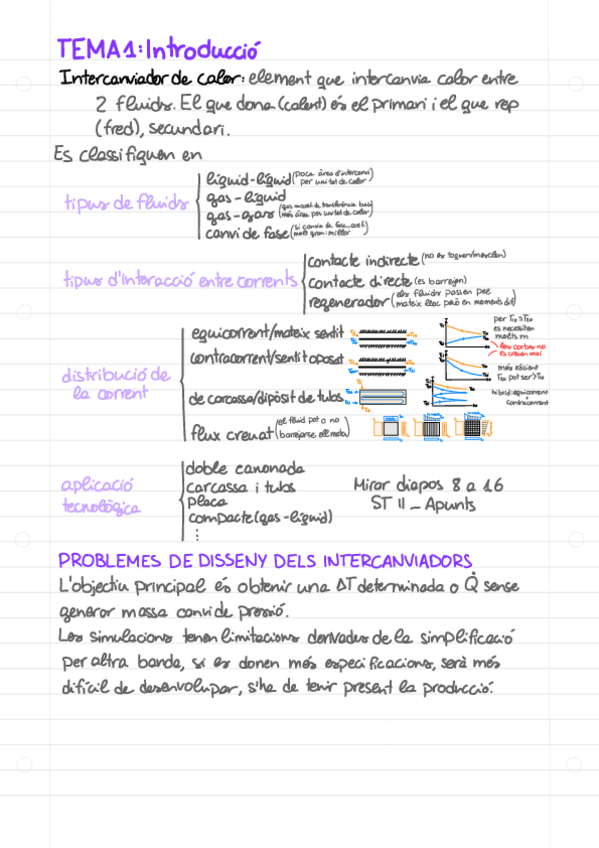 TEMA 1: Introducció
Intercanviador de calor: element que intercanvia calor entre
2 fluids. El que dona (calent) és el primari i el que rep
(fred), secundari.
Es classifiquen en
tipus de fluids
líquid-líquid (poca àrea d'intercanvi per unitat de calor)
gas-líquid
gas-gas (gas coefi de transferència baix més àrea per unitat de calor)
canvi de fase (si canvia de fase, coefi molt gran: millor)
tipus d'interacció entre corrents
contacte indirecte (no es toquen/mesclen)
contacte directe (es barrejen)
regenerador (els fluids passen pel mateix lloc però en moments dif)
distribució de
la corrent
equicorrent/mateix sentit
contracorrent/sentit oposat
de carcassa/dipòsit de tubs
flux creuat (el fluid pot o no barrejarse ell mateix)
es necessiten
molts m
les corbes no
es creuen mai
més eficient
híbrid: equicorrent
contracorrent
aplicació
tecnològica
doble canonada
carcassa i tubs
placa
compacte (gas-líquid)
⋮
Mirar diapos 8 a 16
ST II _ Apunts
PROBLEMES DE DISSENY DELS INTERCANVIADORS
L'objectiu principal és obtenir una ΔT determinada o Q̇ sense
generar massa canvi de pressió.
Les simulacions tenen limitacions derivades de la simplificació
per altra banda, si es donen més especificacions, serà més
difícil de desenvolupar, s'ha de tenir present la producció.